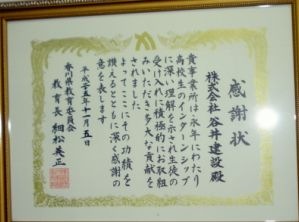 感謝状
株式会社 谷井建設 殿
貴事業所は永年にわたり
高校生のインターンシップ
に深い理解を示され生徒の
受け入れに積極的にお取組
みいただき多大な貢献を
されました
よってここにその功績を
讃えるとともに深く感謝の
意を表します
平成二十五年十一月五日
香川県教育委員会
教育長 細松英正